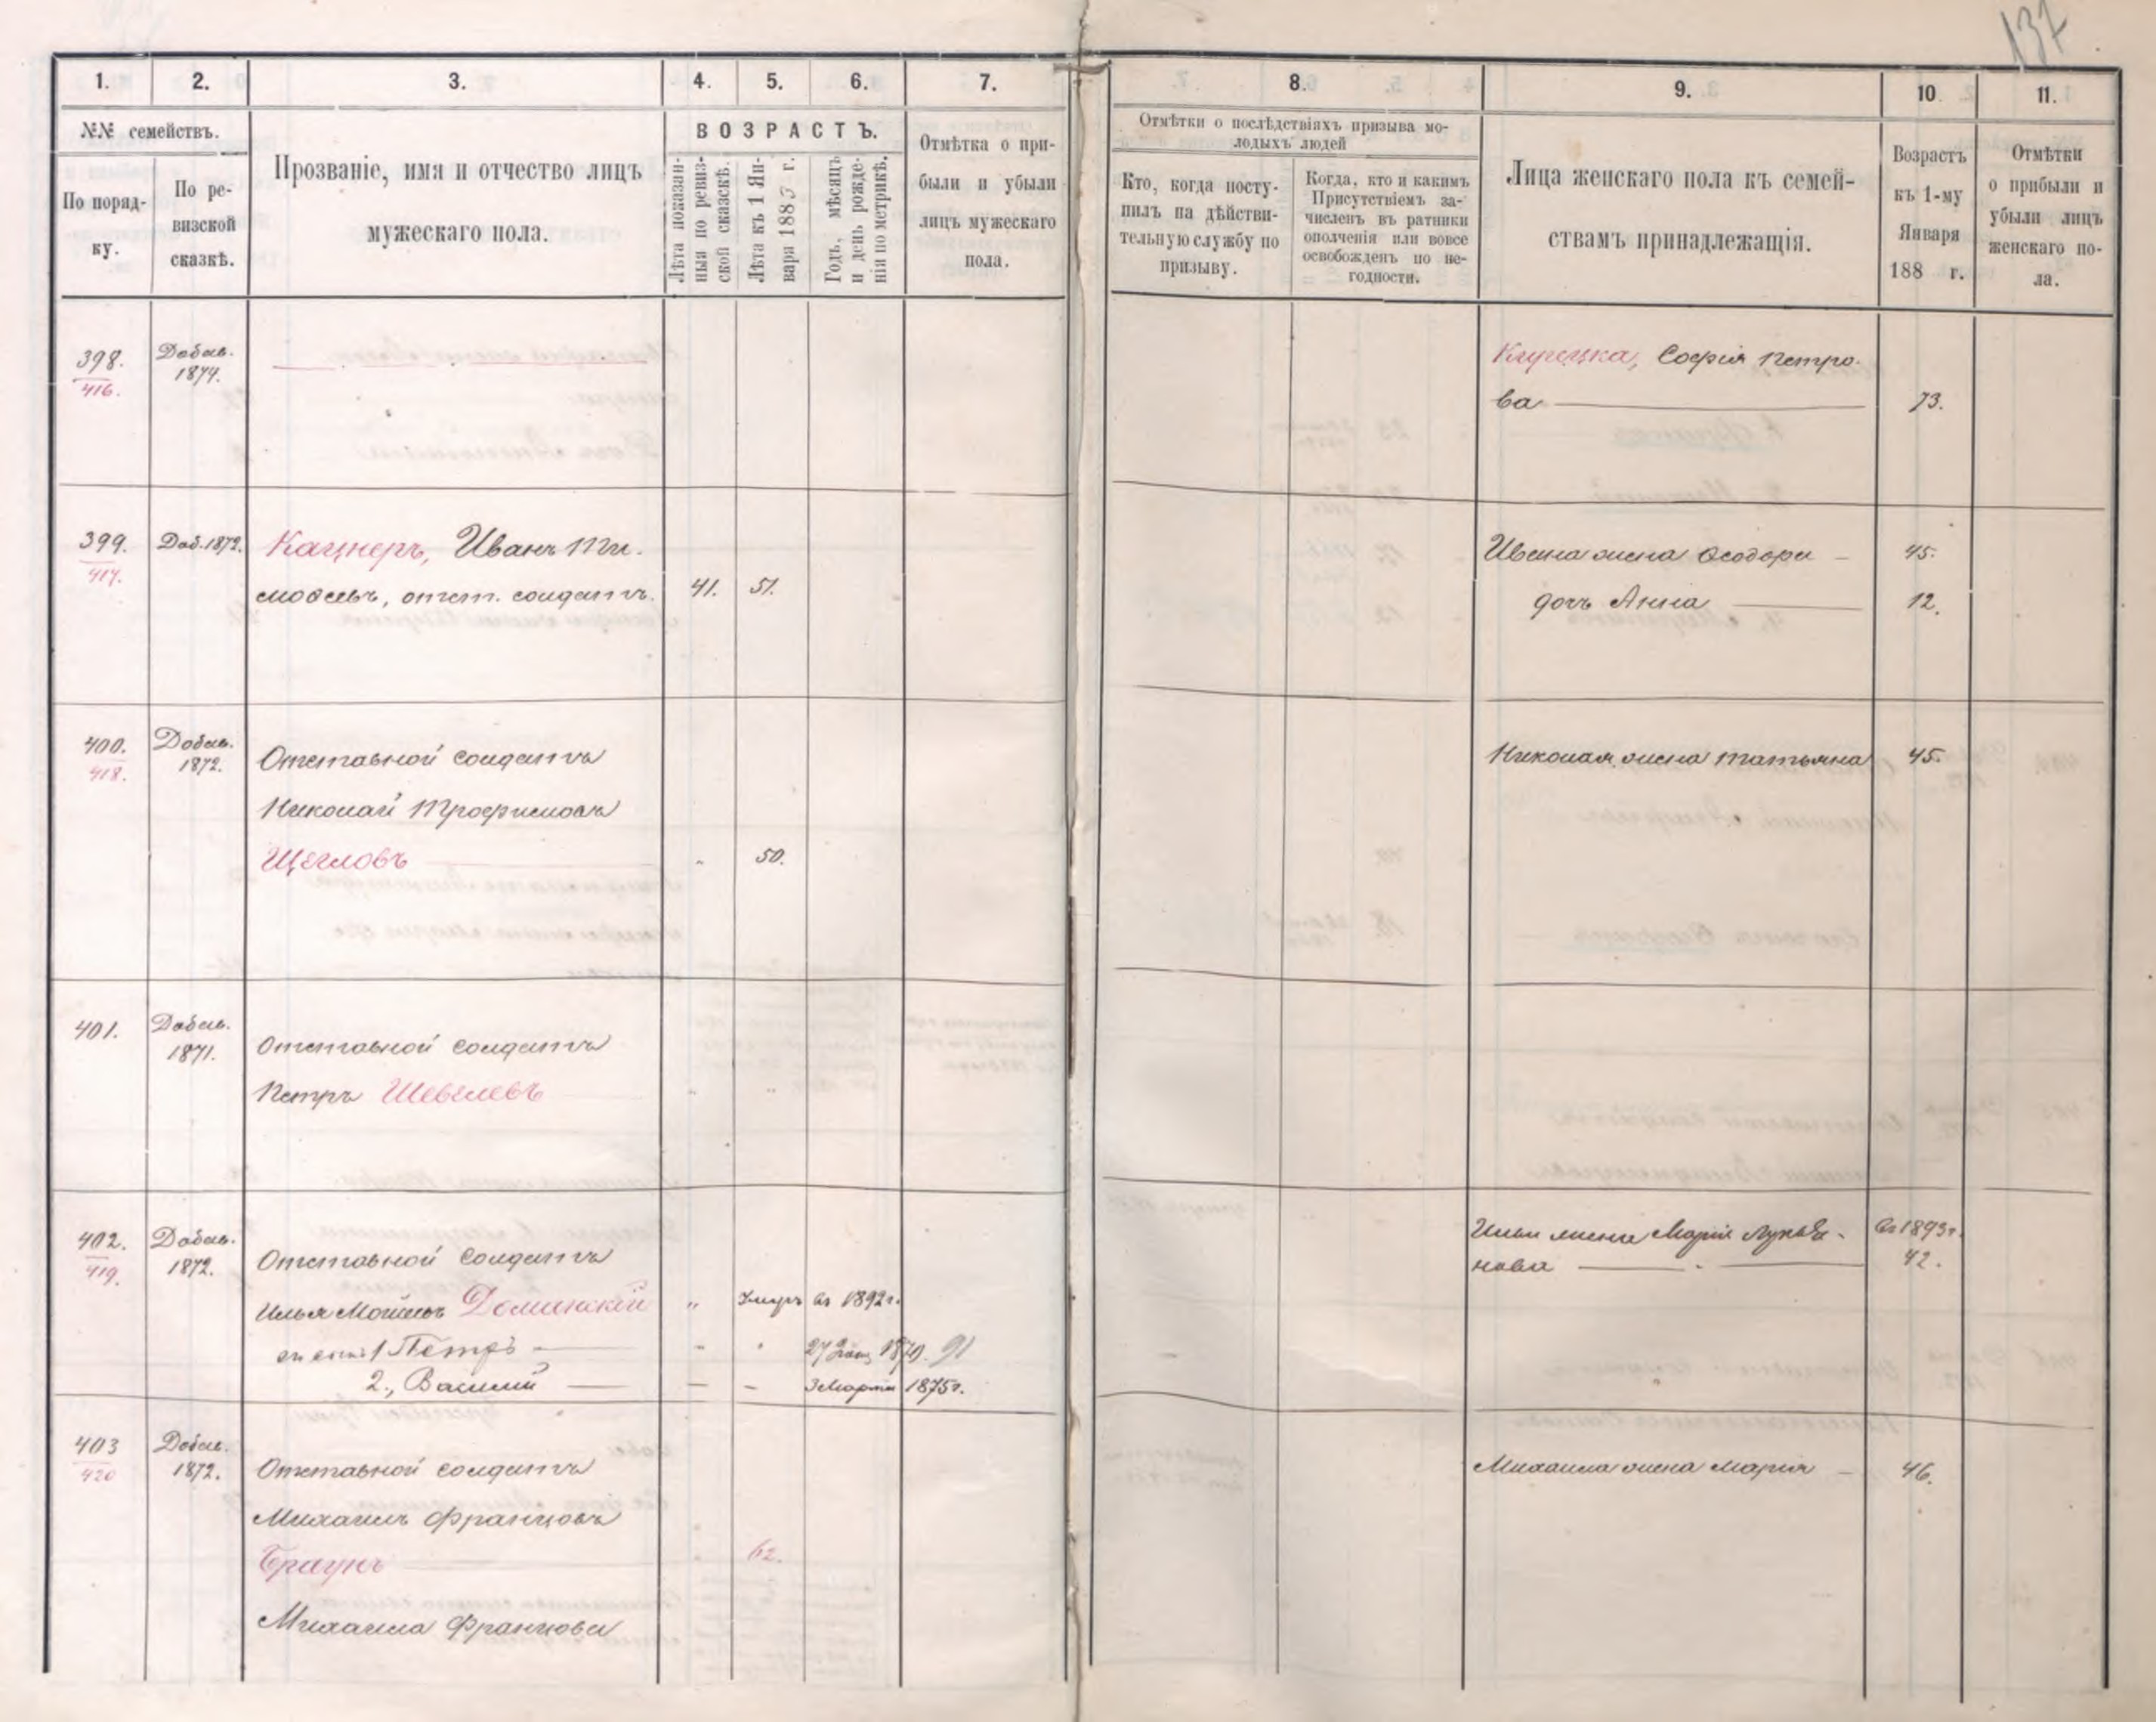 137
1.
2.
3.
4.
5.
6.
7.
№№ семействъ.
По поряд-
ку.
По ре-
визской
сказкѣ.
Прозваніе, имя и отчество лицъ
мужескаго пола.
ВОЗРАСТЪ.
Лѣта показан-
ныя по ревиз-
ской сказкѣ.
Лѣта къ 1 Ян-
варя 1883 г.
Годъ, мѣсяцъ
и день рожде-
нія по метрикѣ.
Отмѣтка о при-
были и убыли
лицъ мужескаго
пола.
398.
416.
Добав.
1874.
399.
417.
Доб. 1872.
Кацнеръ, Иванъ Ти-
моѳеевъ, отст. солдатъ.
41.
51.
400.
418.
Добав.
1872.
Отставной солдатъ
Николай Трофимовъ
Щегловъ
"
50.
401.
Добав.
1871.
Отставной солдатъ
Петръ Шевелевъ
"
"
402.
419.
Добав.
1872.
Отставной солдатъ
Илья Доминскій
"
Умеръ въ 1892 г.
1 Петръ
"
"
27 1870. 91
2., Василій
—
—
3 Марта 1875 г.
403
420
Добав.
1872.
Отставной солдатъ
Михаилъ Францовъ
Браунъ
"
62.
Михаила Францова
8.
9.
10
11.
Отмѣтки о послѣдствіяхъ призыва мо-
лодыхъ людей
Кто, когда посту-
пилъ на дѣйстви-
тельную службу по
призыву.
Когда, кто и какимъ
Присутствіемъ за-
численъ въ ратники
ополченія или вовсе
освобожденъ по не-
годности.
Лица женскаго пола къ семей-
ствамъ принадлежащія.
Возрастъ
къ 1-му
Января
188 г.
Отмѣтки
о прибыли и
убыли лицъ
женскаго по-
ла.
Софія Петро-
ва
73.
Ивана жена Ѳеодора
45.
дочь Анна
12.
Николая жена Татьяна
45.
Ильи жена Марія Лукья-
нова
въ 1893 г.
42.
Михаила жена Марія
46.